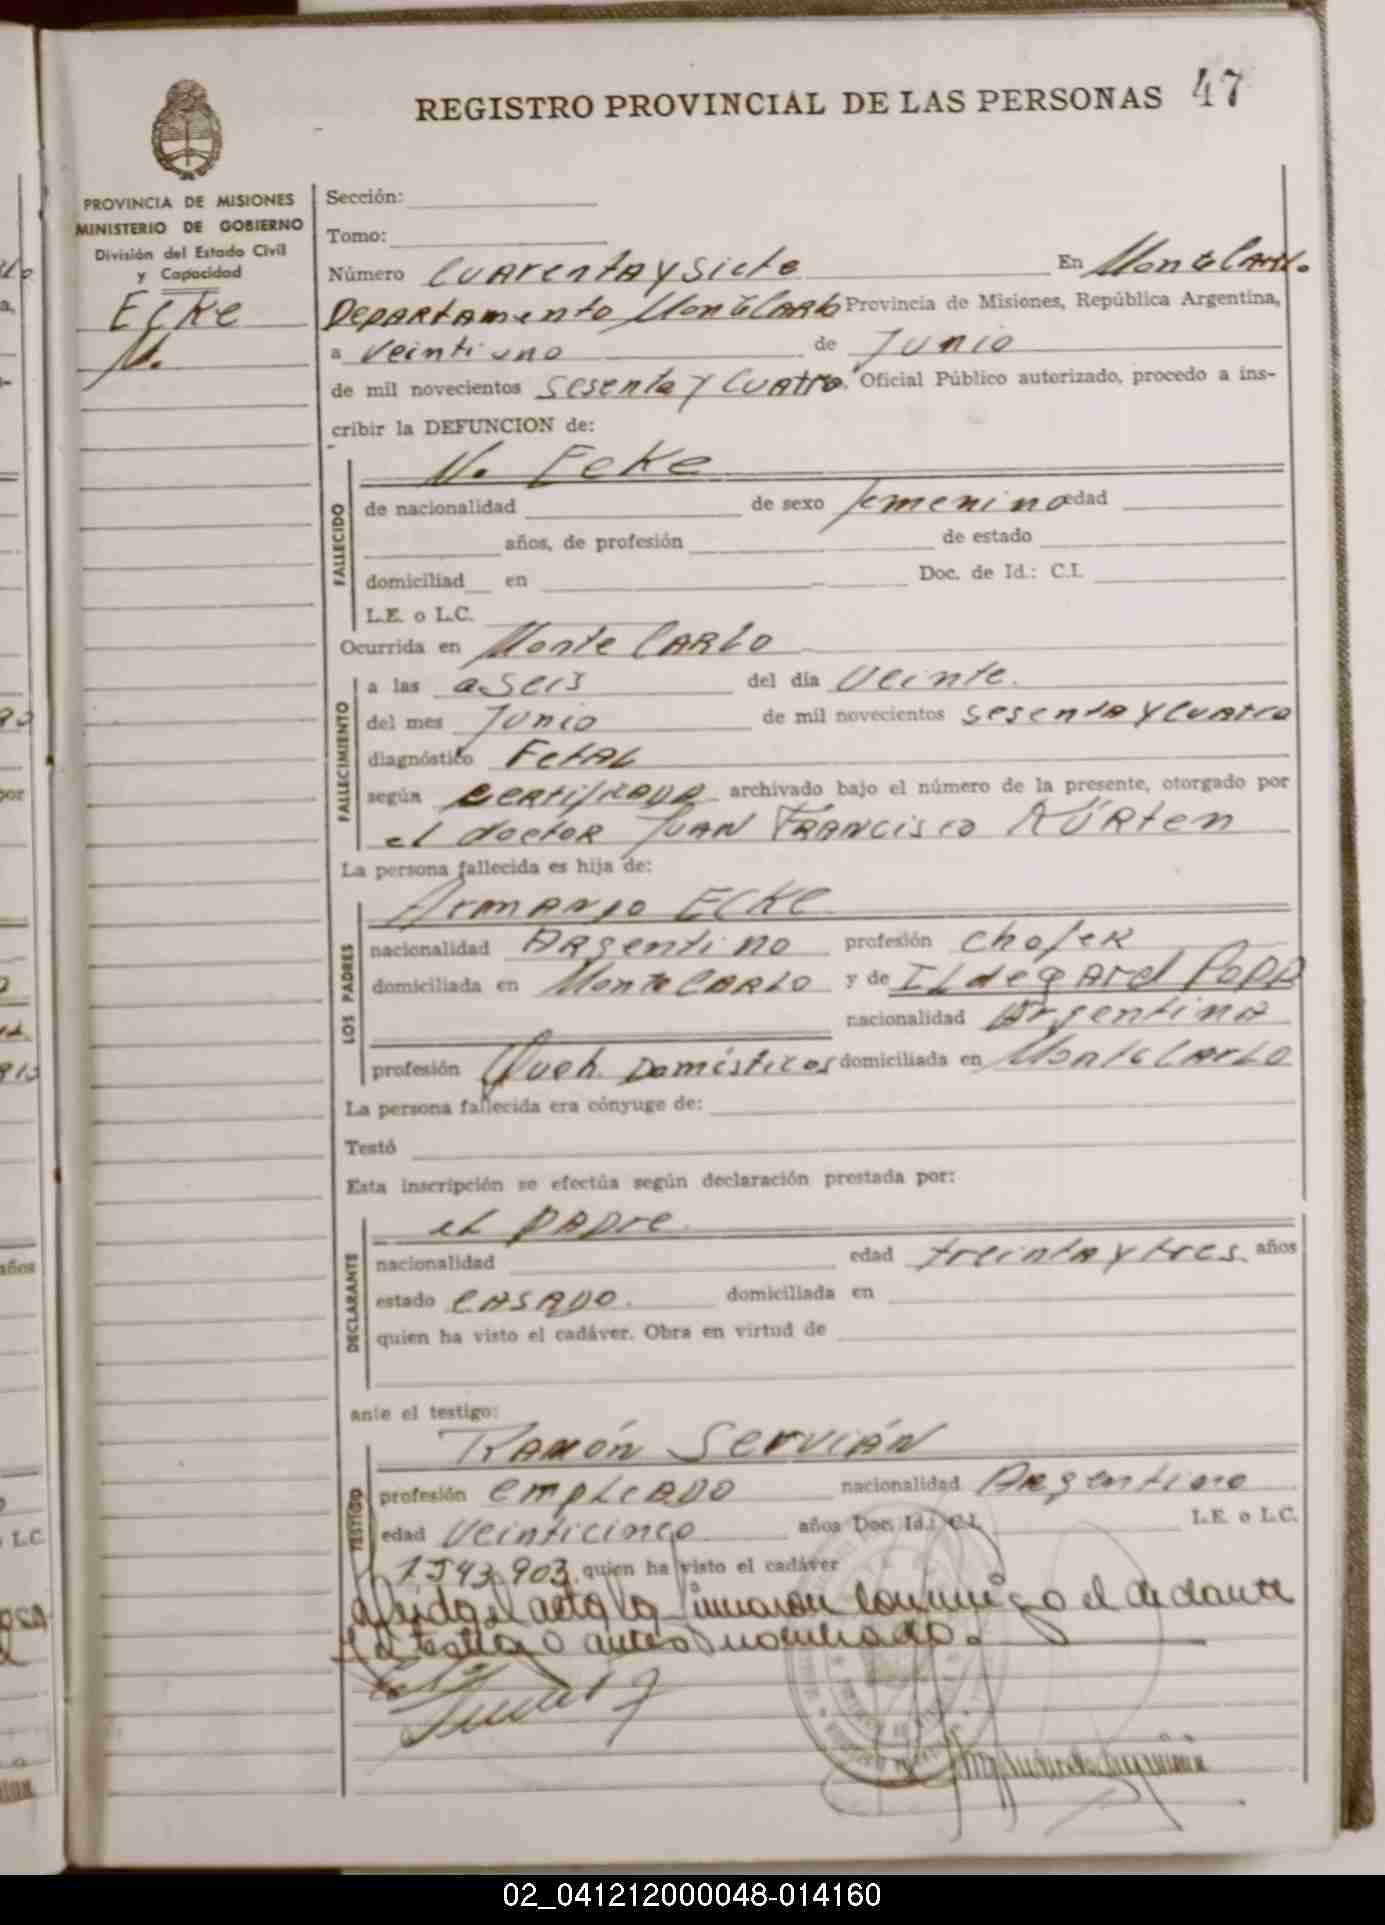 47
REGISTRO PROVINCIAL DE LAS PERSONAS
PROVINCIA DE MISIONES
MINISTERIO DE GOBIERNO
División del Estado Civil
y Capacidad
Ecke
N.
Sección:
Tomo:
Número Cuarenta y siete En Monte Carlo.
Departamento Monte Carlo Provincia de Misiones, República Argentina,
a veintiuno de Junio
de mil novecientos sesenta y cuatro. Oficial Público autorizado, procedo a ins-
cribir la DEFUNCION de:
N. Ecke
FALLECIDO
de nacionalidad de sexo femenino edad
años, de profesión de estado
domiciliad en Doc. de Id.: C.I.
L.E. o L.C.
Ocurrida en Monte Carlo
FALLECIMIENTO
a las a seis del día veinte.
del mes Junio de mil novecientos sesenta y cuatro
diagnóstico Fetal
según certificado archivado bajo el número de la presente, otorgado por
el doctor Juan Francisco Kürten
La persona fallecida es hija de:
LOS PADRES
Armando Ecke
nacionalidad Argentino profesión chofer
domiciliada en Monte Carlo y de Ildegard Popp
nacionalidad Argentina
profesión Queh. Domésticos domiciliada en Monte Carlo
La persona fallecida era cónyuge de:
Testó
Esta inscripción se efectúa según declaración prestada por:
DECLARANTE
el padre
nacionalidad edad treinta y tres años
estado casado. domiciliada en
quien ha visto el cadáver. Obra en virtud de
ante el testigo:
TESTIGO
Ramón Servián
profesión empleado nacionalidad Argentino
edad veinticinco años Doc. Id.: C.I. L.E. o L.C.
7.543.903. quien ha visto el cadáver
el acta la firmaron conmigo el declarante
testigo antes nombrado.
02_041212000048-014160